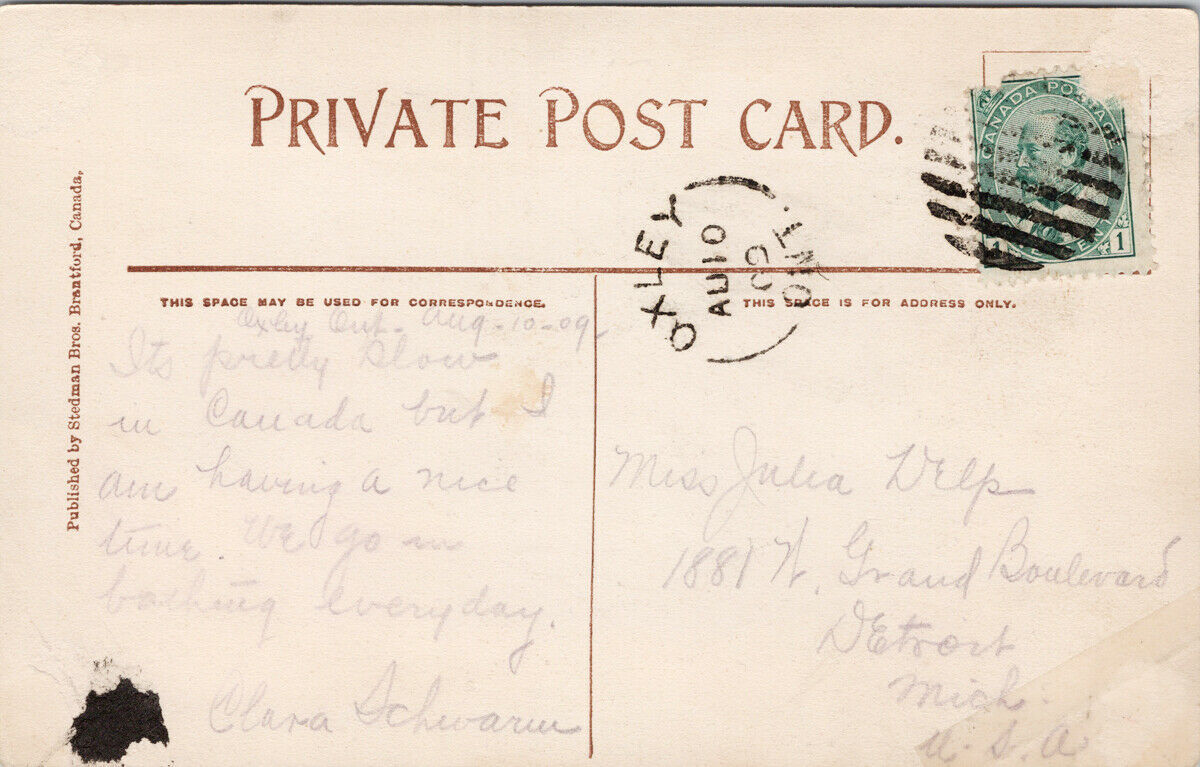 PRIVATE POST CARD.
CANADA POSTAGE
1 CENT 1
OXLEY
AU 10
09
ONT.
Published by Stedman Bros. Brantford, Canada,
THIS SPACE MAY BE USED FOR CORRESPONDENCE.
Oxley Ont. Aug-10-09
Its pretty slow
in Canada but I
am having a nice
time. We go in
bathing everyday.
Clara Schwarm
THIS SPACE IS FOR ADDRESS ONLY.
Miss Julia Welp
1881 W. Grand Boulevard
Detroit
Mich.
U.S.A.